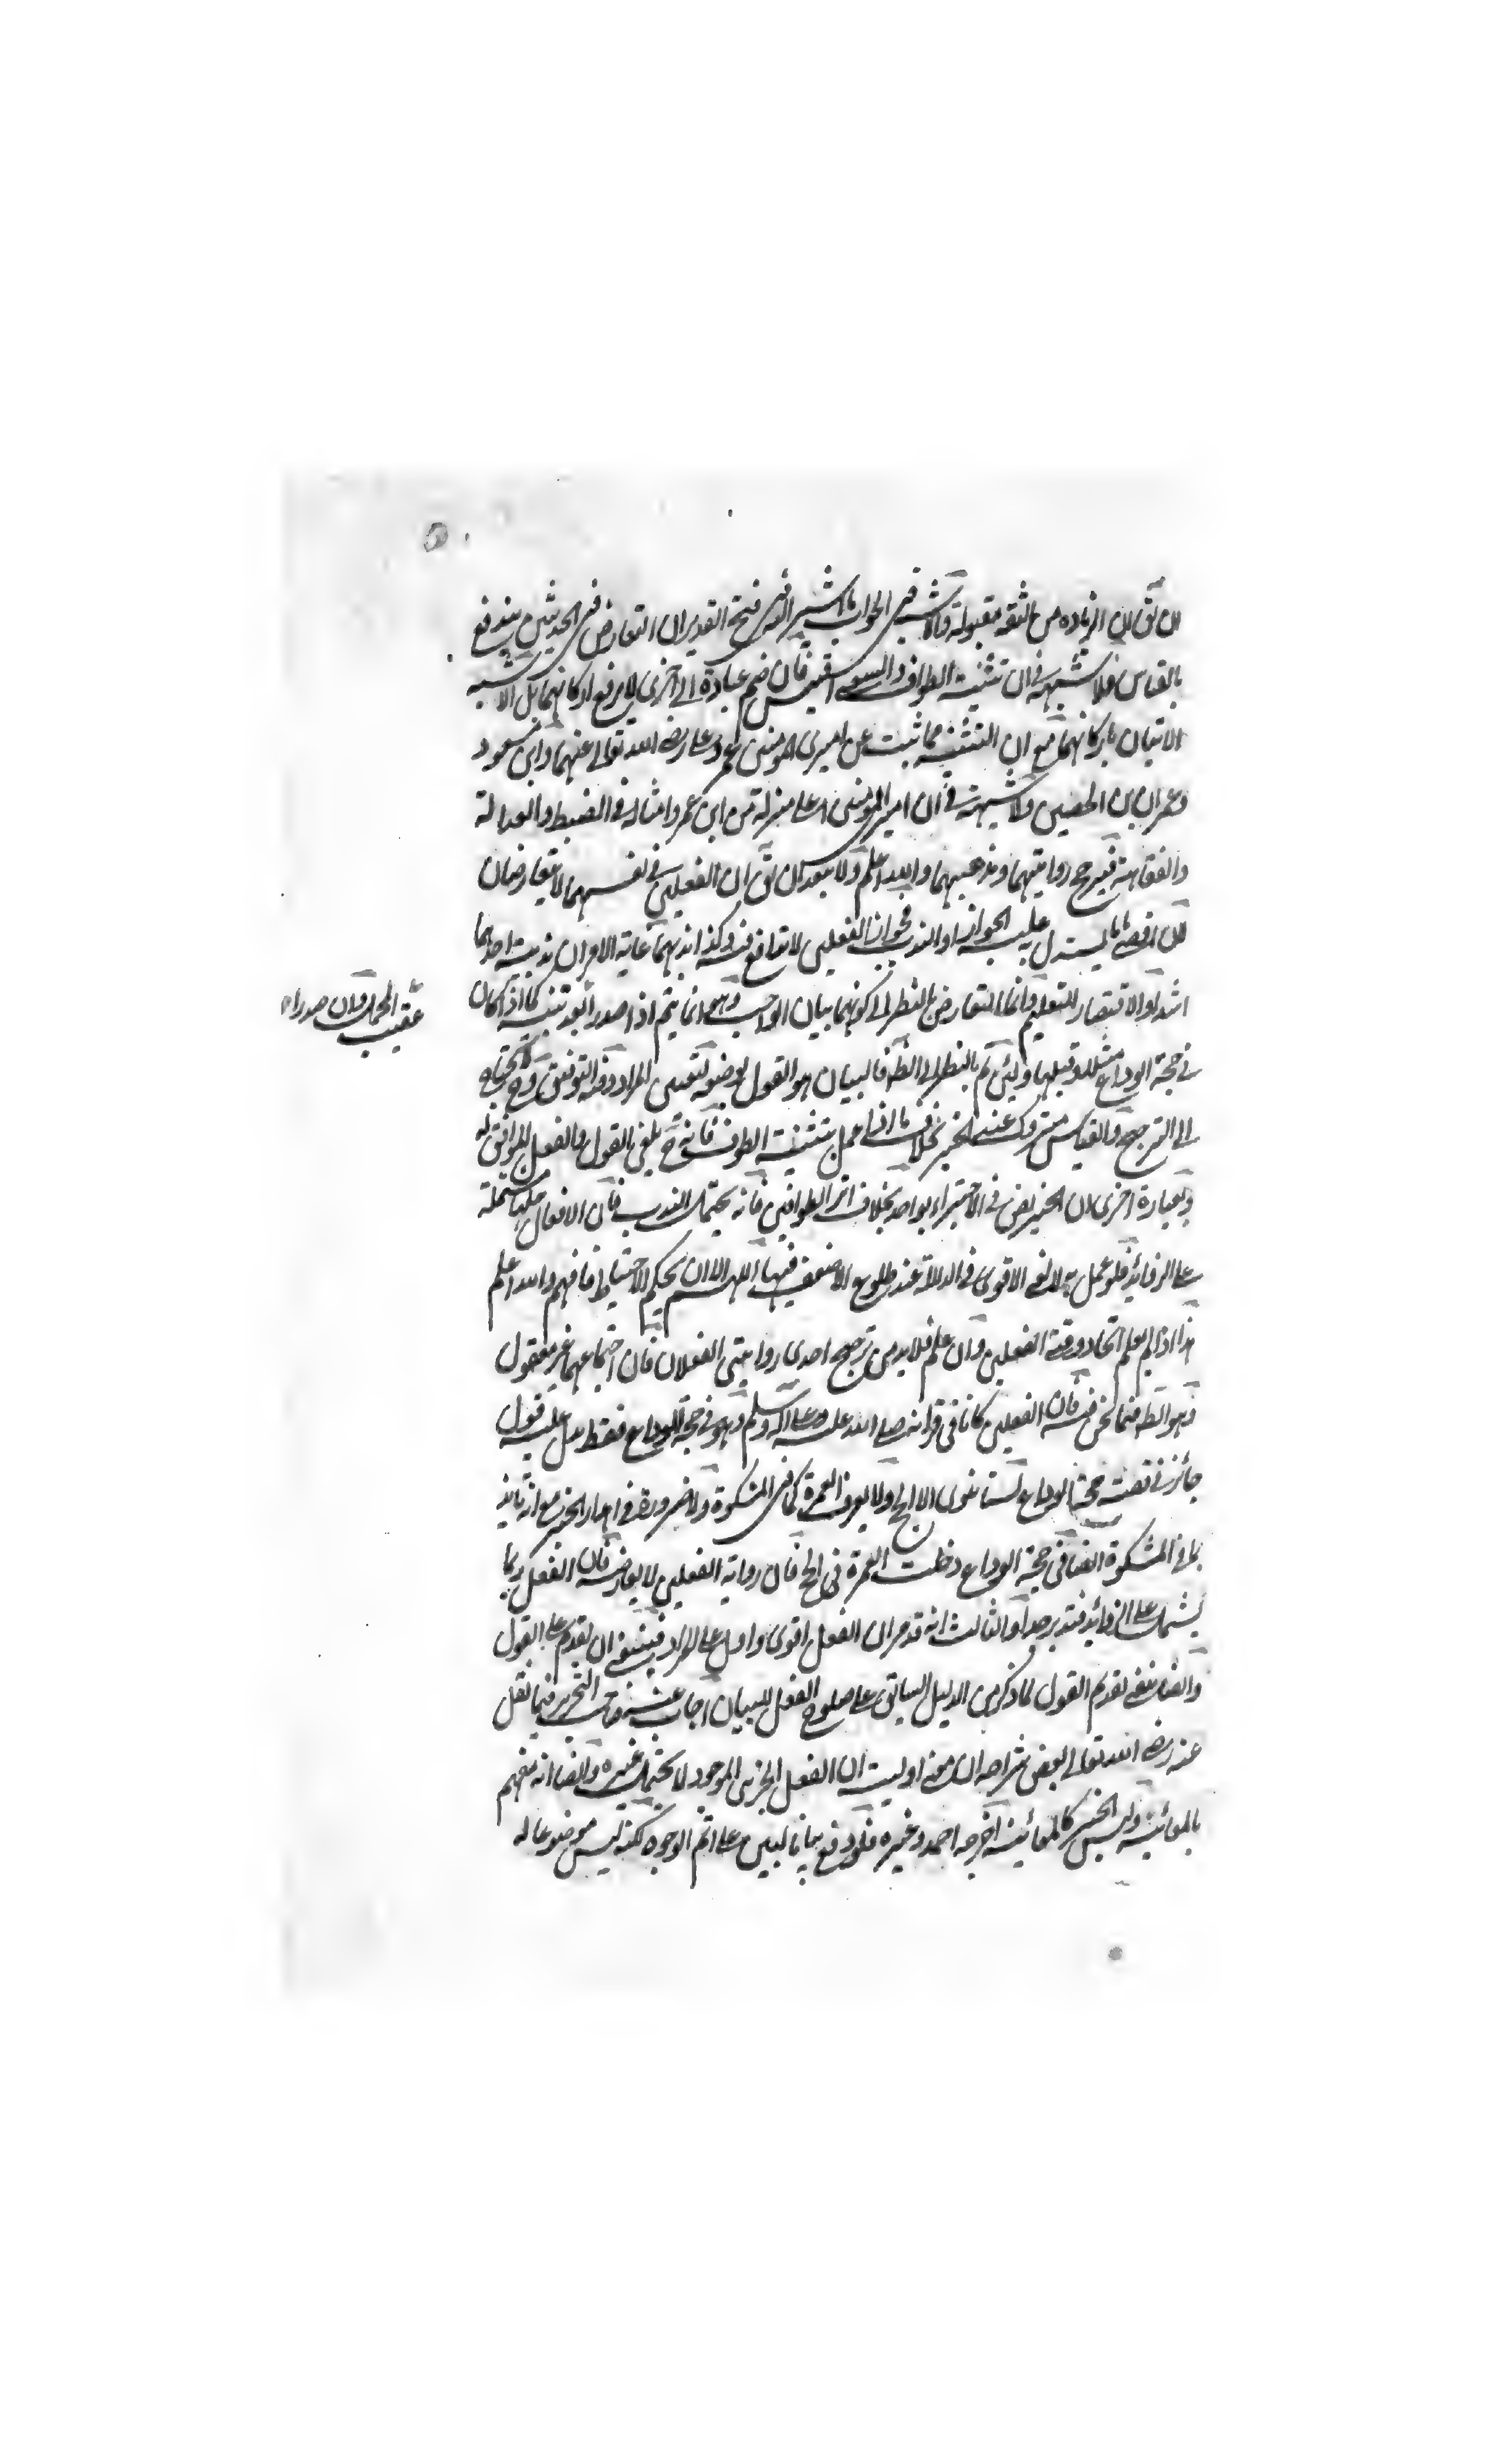 ان يق ان الزيادة من الثقة مقبولة فالاشبه في الجواب ما اشير اليه في فتح القدير ان التعارض في الحديثين يندفع
بالقياس فلا شبهة في ان تثنية الطواف والسعي اقيس فان ضم عبادة الى اخرى لا يرفع اركانهما بل الاشبه
الاتيان باركانهما مع ان التثنية مما ثبت عن اميري المؤمنين عمر وعلي رضي الله تعالى عنهما وابن مسعود
وعمران بن الحصين ولا شبهة في ان اميري المؤمنين اعلى منزلة من ابن عمر وامثاله في الضبط والعدالة
والفقاهة فيرجح روايتهما ومذهبهما والله اعلم ولا يبعد ان يق ان الفعلين في نفسهما لا يتعارضان
لان اقصى ما يستدل به عليه الجواز او الندب فجواز الفعلين لا تدافع فيه وكذا ندبهما غاية الامر ان ندبية احدهما
اشد او الاقتصار للتعليم وانما التعارض بالنظر الى كونهما بيان الواجب وهو انما يتم اذا صدر بعد تبينه كما اذا كان
في حجة الوداع مثلا وقبلها ولئن تم بالنظر الى الظ فالبيان هو القول لوضوحه لتعيين المراد وفيه التوفيق وح لا يحتاج
الى الترجيح والقياس متروك عند الخبر بخلاف ما اذا عمل بتثنية الطواف فانه ح يلغى القول والفعل الموافق له
وبعبارة اخرى ان الخبر نص في الاجتزاء بواحد بخلاف اثر الطوافين فانه يحتمل الندب فان الافعال جلها مشتملة
على الزوائد فلو عمل به لالغي الاقوى في الدلالة عند طلوع الاضعف فيها اللهم الا ان يحكم الاحتياط فافهم والله اعلم
هذا اذا لم يعلم اتحاد وقت الفعلين وان علم فلا بد من ترجيح احدى روايتي الفعلان فان اجتماعهما غير معقول
وهو الظ فيما نحن فيه فان الفعلين كانا في قرانه صلى الله عليه وعلى اله وسلم وهو في حجة الوداع فقط يدل عليه قول
جابر في قصة حجة الوداع لسنا ننوي الا الحج ولا نعرف العمرة كما في المشكوة ولا ضرورة في اهدار الخبر مع انه تايد
بما في المشكوة ايضا في حجة الوداع دخلت العمرة في الحج فان رواية الفعلين لا يعارضه فان الفعل ربما
يشتمل على الزوائد فتدبر جدا والثالث انه قد مر ان الفعل اقوى وادل على المراد فينبغي ان يقدم على القول
وايضا ينبغي تقديم القول لما ذكر من الدليل السابق على صلوح الفعل للبيان اجاب عنه صاحب التحرير فيما نقل
عنه رضي الله تعالى بعض شراحه ان معنى اوليته ان الفعل الجزئي الموجود لا يحتمل غيره وايضا انه يفهم
بالمعاينة وليس الخبر كالمعاينة اخرجه احمد وغيره فلو وقع بيانا لبين على اتم الوجوه لكنه ليس موضوعا له
عقيب المجمل وان صدرا